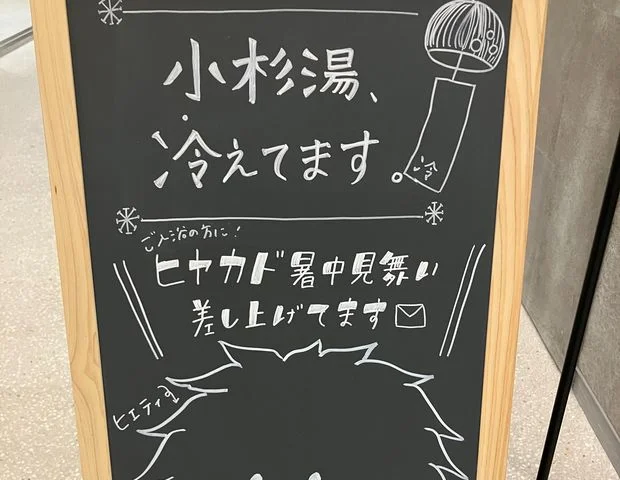 小杉湯、
冷えてます。
冷
ご入浴の方に!
ヒヤカド暑中見舞い
差し上げてます
ヒエティ